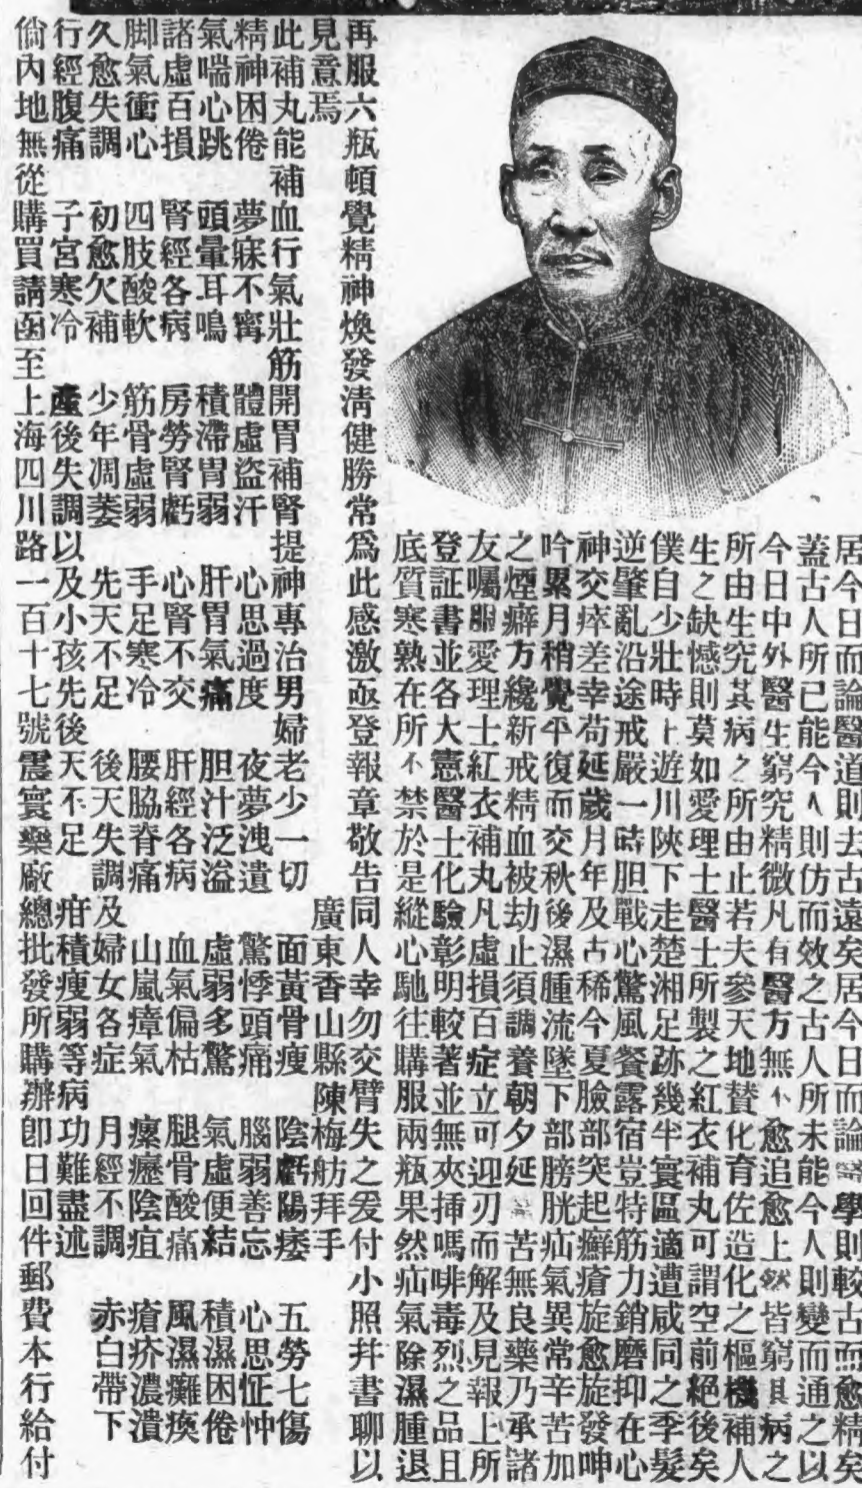 居今日而論醫道則去古遠矣居今日而論學則較古而愈精矣
蓋古人所已能今人則仿而效之古人所未能今人則變而通之以
今日中外醫生窮究精微凡有醫方無不愈追愈上然皆窮其病之
所由生究其病之所由止若夫參天地贊化育佐造化之樞機補人
生之缺憾則莫如愛理士醫士所製之紅衣補丸可謂空前絕後矣
僕自少壯時上遊川陝下走楚湘足跡幾半寰區適遭咸同之季髮
逆肇亂沿途戒嚴一時胆戰心驚風餐露宿豈特筋力銷磨抑在心
神交瘁差幸苟延歲月年及古稀今夏臉部突起癬瘡旋愈旋發呻
吟累月稍覺平復而交秋後濕腫流墜下部膀胱疝氣異常辛苦加
之煙癖方纔新戒精血被劫止須調養朝夕延 苦無良藥乃承諸
友囑服愛理士紅衣補丸凡虛損百症立可迎刃而解及見報上所
登証書並各大憲醫士化驗彰明較著並無夾挿嗎啡毒烈之品且
底質寒熟在所不禁於是縱心馳往購服兩瓶果然疝氣除濕腫退
再服六瓶頓覺精神煥發淸健勝常爲此感激亟登報章敬告同人幸勿交臂失之爰付小照幷書聊以
見意焉 廣東香山縣陳梅舫拜手
此補丸能補血行氣壯筋開胃補腎提神專治男婦老少一切 面黃骨瘦 陰虧陽痿 五勞七傷
精神困倦 夢寐不甯 體虛盜汗 心思過度 夜夢洩遺 驚悸頭痛 腦弱善忘 心思怔忡
氣喘心跳 頭暈耳鳴 積滯胃弱 肝胃氣痛 胆汁泛溢 虛弱多驚 氣虛便結 積濕困倦
諸虛百損 腎經各病 房勞腎虧 心腎不交 肝經各病 血氣偏枯 腿骨酸痛 風濕癱瘓
脚氣衝心 四肢酸軟 筋骨虛弱 手足寒冷 腰脇脊痛 山嵐瘴氣 瘰癧陰疽 瘡疥濃潰
久愈失調 初愈欠補 少年凋萎 先天不足 後天失調及婦女各症 月經不調 赤白帶下
行經腹痛 子宮寒冷 產後失調以及小孩先後天不足 疳積瘦弱等病功難盡述
倘內地無從購買請函至上海四川路一百十七號震寰藥廠總批發所購辦卽日回件郵費本行給付